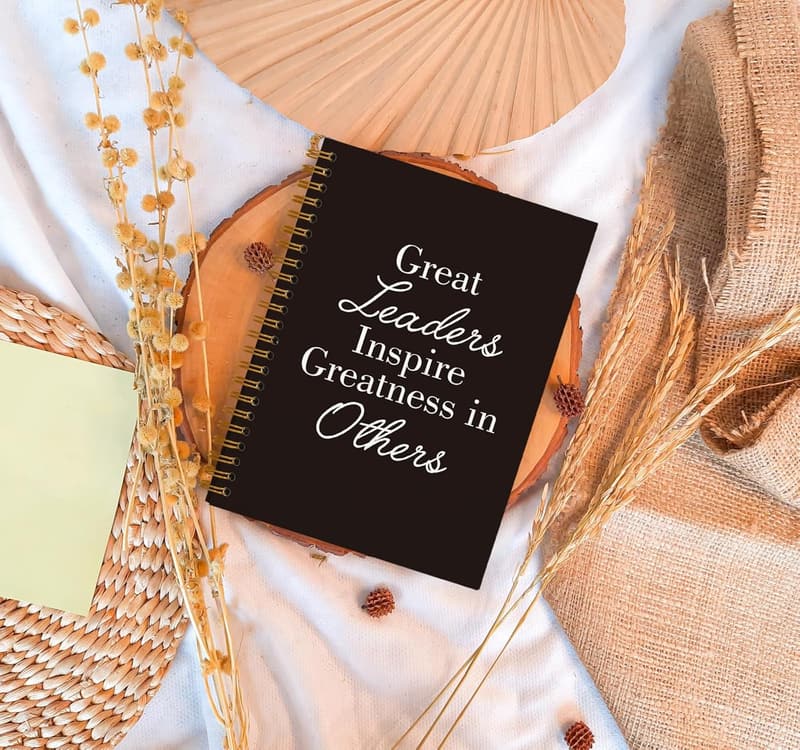 Great
Leaders
Inspire
Greatness in
Others